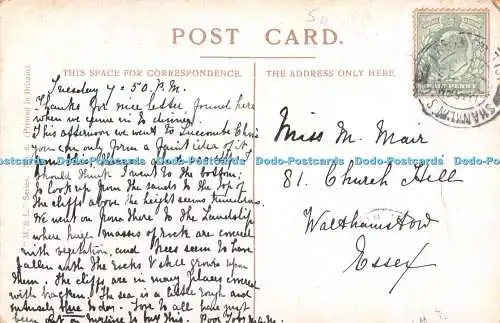 POST CARD.
THIS SPACE FOR CORRESPONDENCE.
THE ADDRESS ONLY HERE.
(Printed in Britain).
"M. S. L." Series
Tuesday 7-50. P.M.
Thanks for nice letter found here
when we came in to dinner.
This afternoon we went to Luccombe Chine
you can only form a faint idea of it,
from the
should think I went to the bottom;
to look up from the sands to the top of
the cliffs above the height seems tremendous.
We went on from there to the Landslip
where huge masses of rock are covered
with vegetation, and trees seem to have
fallen with the rocks & still grown upon
them. The cliffs are in many places covered
with bracken. The sea is a little rough and
entirely here to-day. Love to all have just
been out on
Miss M. Mair
81. Church Hill
Walthamstow
Essex
HALF PENNY
SHANKLIN
Dodo-Postcards Dodo-Postcards Dodo-Postcards Dodo-Postcards